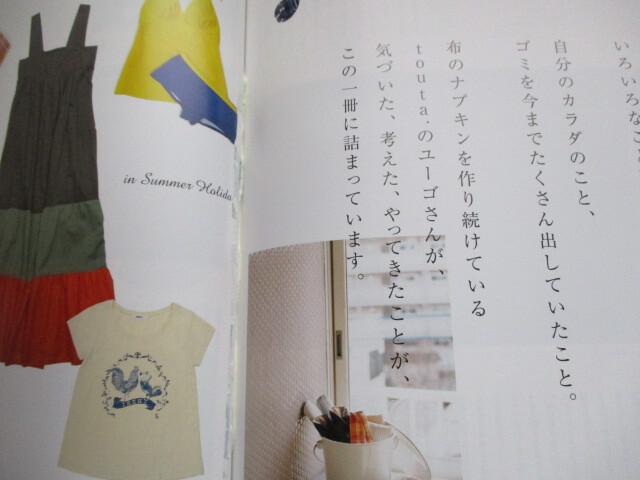 in Summer Holida
いろいろなこと
自分のカラダのこと、
ゴミを今までたくさん出していたこと。
布のナプキンを作り続けている
touta.のユーゴさんが、
気づいた、考えた、やってきたことが、
この一冊に詰まっています。